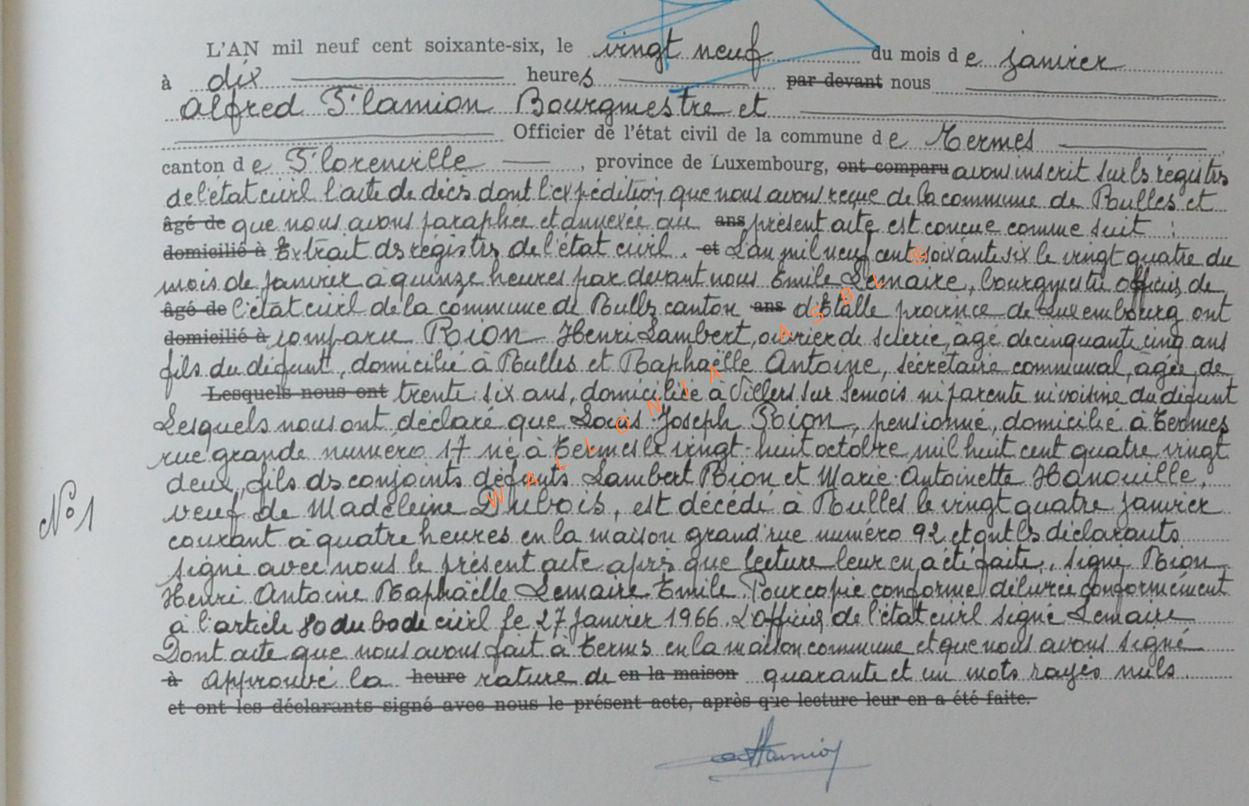 L'AN mil neuf cent soixante-six, le vingt neuf du mois d e janvier
à dix heures par devant nous
Alfred Slamion Bourgmestre et
Officier de l'état civil de la commune d e Termes
canton d e Florenville, province de Luxembourg, ont comparu avons inscrit sur les registres
de l'état civil l'acte de décès dont l'expédition que nous avons reçue de la commune de Rulles et
âgé de que nous avons paraphée et annexée au ans présent acte est conçue comme suit :
domicilié à Extrait des registres de l'état civil. et L'an mil neuf cent soixante six le vingt quatre du
mois de janvier à quinze heures par devant nous Emile Lemaire, bourgmestre officier de
âgé de l'état civil de la commune de Rulles canton ans d'Etalle province de Luxembourg ont
domicilié à comparu Rion Henri Lambert, ouvrier de scierie, âgé de cinquante cinq ans
fils du défunt, domicilié à Rulles et Raphaëlle Antoine, secrétaire communal, âgée de
Lesquels nous ont trente-six ans, domiciliée à Villers sur Semois ni parente ni voisine du défunt
Lesquels nous ont déclaré que Louis Joseph Rion, pensionné, domicilié à Termes
rue grande numéro 17 né à Termes le vingt-huit octobre mil huit cent quatre vingt
deux, fils des conjoints défunts Lambert Rion et Marie-Antoinette Hanouille,
veuf de Madeleine Dubois, est décédé à Rulles le vingt quatre janvier
courant à quatre heures en la maison grand'rue numéro 92 et ont les déclarants
signé avec nous le présent acte après que lecture leur en a été faite. signé Rion
Henri Antoine Raphaëlle Lemaire Emile. Pour copie conforme délivrée conformément
à l'article 80 du Code civil le 27 Janvier 1966. L'Officier de l'état civil signé Lemaire
Dont acte que nous avons fait à Termes en la maison commune et que nous avons signé
à Approuvé la heure rature de en la maison quarante et un mots rayés nuls.
et ont les déclarants signé avec nous le présent acte, après que lecture leur en a été faite.
N° 1
WALLONIA ASBL